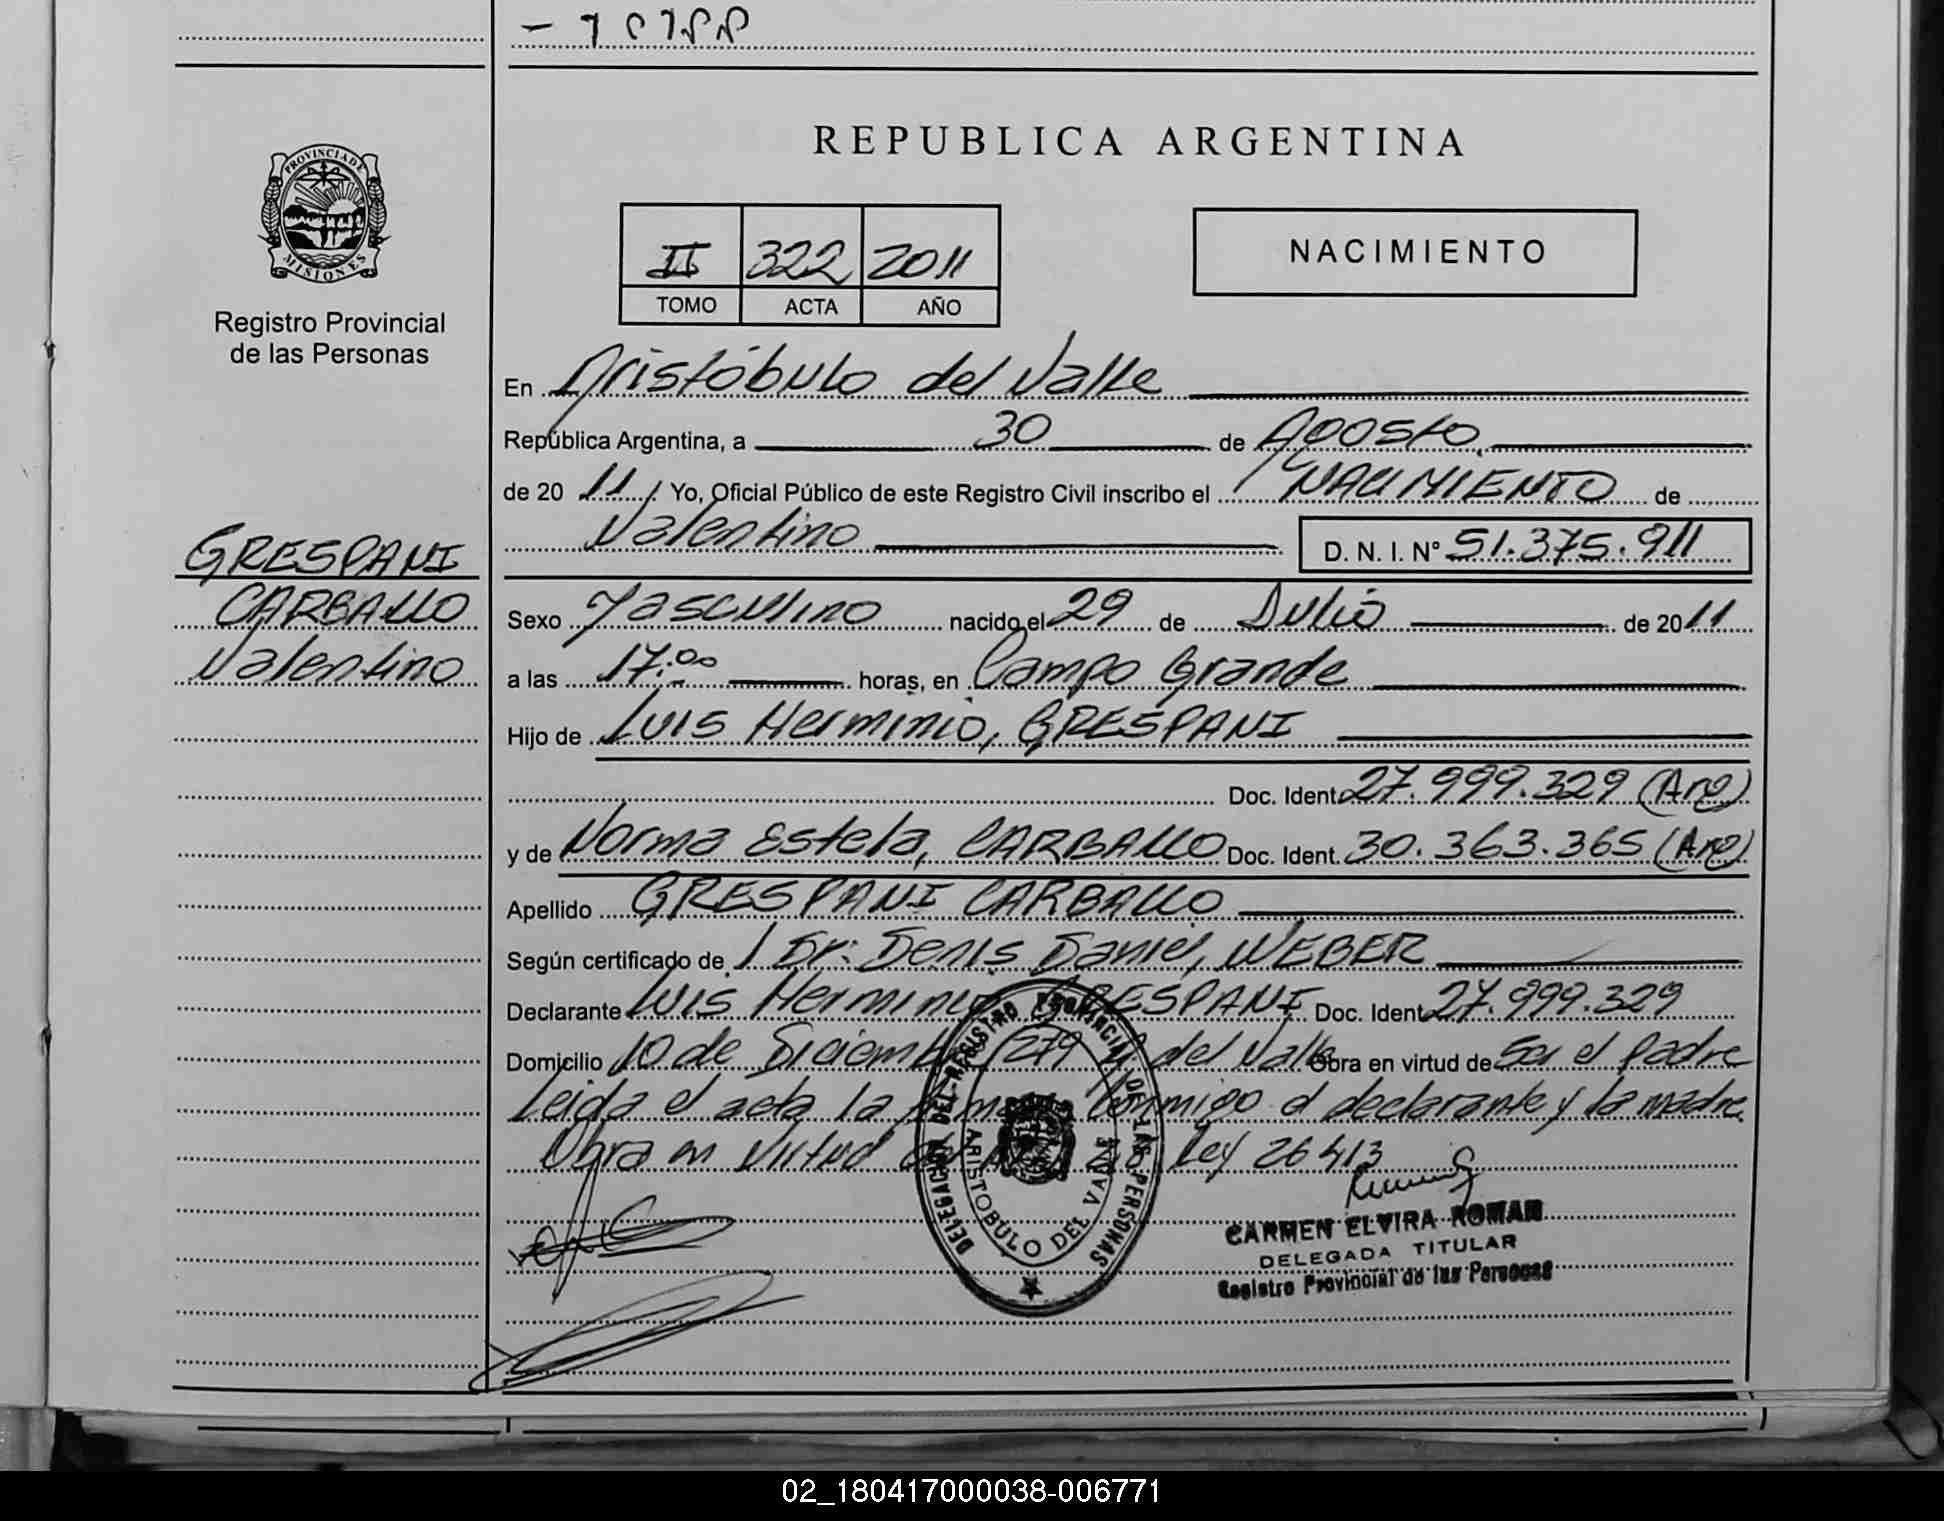 PROVINCIA DE
MISIONES
Registro Provincial
de las Personas
GRESPANI
CARBALLO
Valentino
REPUBLICA ARGENTINA
II 322 2011
TOMO ACTA AÑO
NACIMIENTO
En Aristóbulo del Valle
República Argentina, a 30 de Agosto
de 20 11 Yo, Oficial Público de este Registro Civil inscribo el NACIMIENTO de
Valentino D. N. I. N° 51.375.911
Sexo Masculino nacido el 29 de Julio de 20 11
a las 17:00 horas, en Campo Grande
Hijo de Luis Herminio, GRESPANI
Doc. Ident. 27.999.329 (Arg)
y de Norma Estela, CARBALLO Doc. Ident. 30.363.365 (Arg)
Apellido GRESPANI CARBALLO
Según certificado de Dr: Denis Daniel, WEBER
Declarante Luis Herminio GRESPANI Doc. Ident. 27.999.329
Domicilio 10 de Diciembre 1279 del Valle Obra en virtud de Ser el padre
Leida el acta la conmigo el declarante y la madre
Obra en virtud Ley 26413
DELEGACION DEL REGISTRO PROVINCIAL DE LAS PERSONAS
ARISTOBULO DEL VALLE
CARMEN ELVIRA ROMAN
DELEGADA TITULAR
Registro Provincial de las Personas
02_180417000038-006771